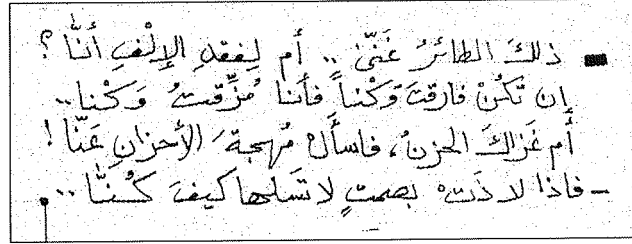 ذلكَ الطائرُ غَنّى .. أم لِفقدِ الإِلْفِ أنّا ؟
إن تَكُنْ فارقتَ وَكْناً فأنا مُزِّقتُ وَكْنا ..
أم غَزاكَ الحزنُ، فاسألْ مُهجةَ الأحزانِ عَنّا !
- فإذا لاذَتْ بصمتٍ لا تَسَلها كيفَ كُنّا ..